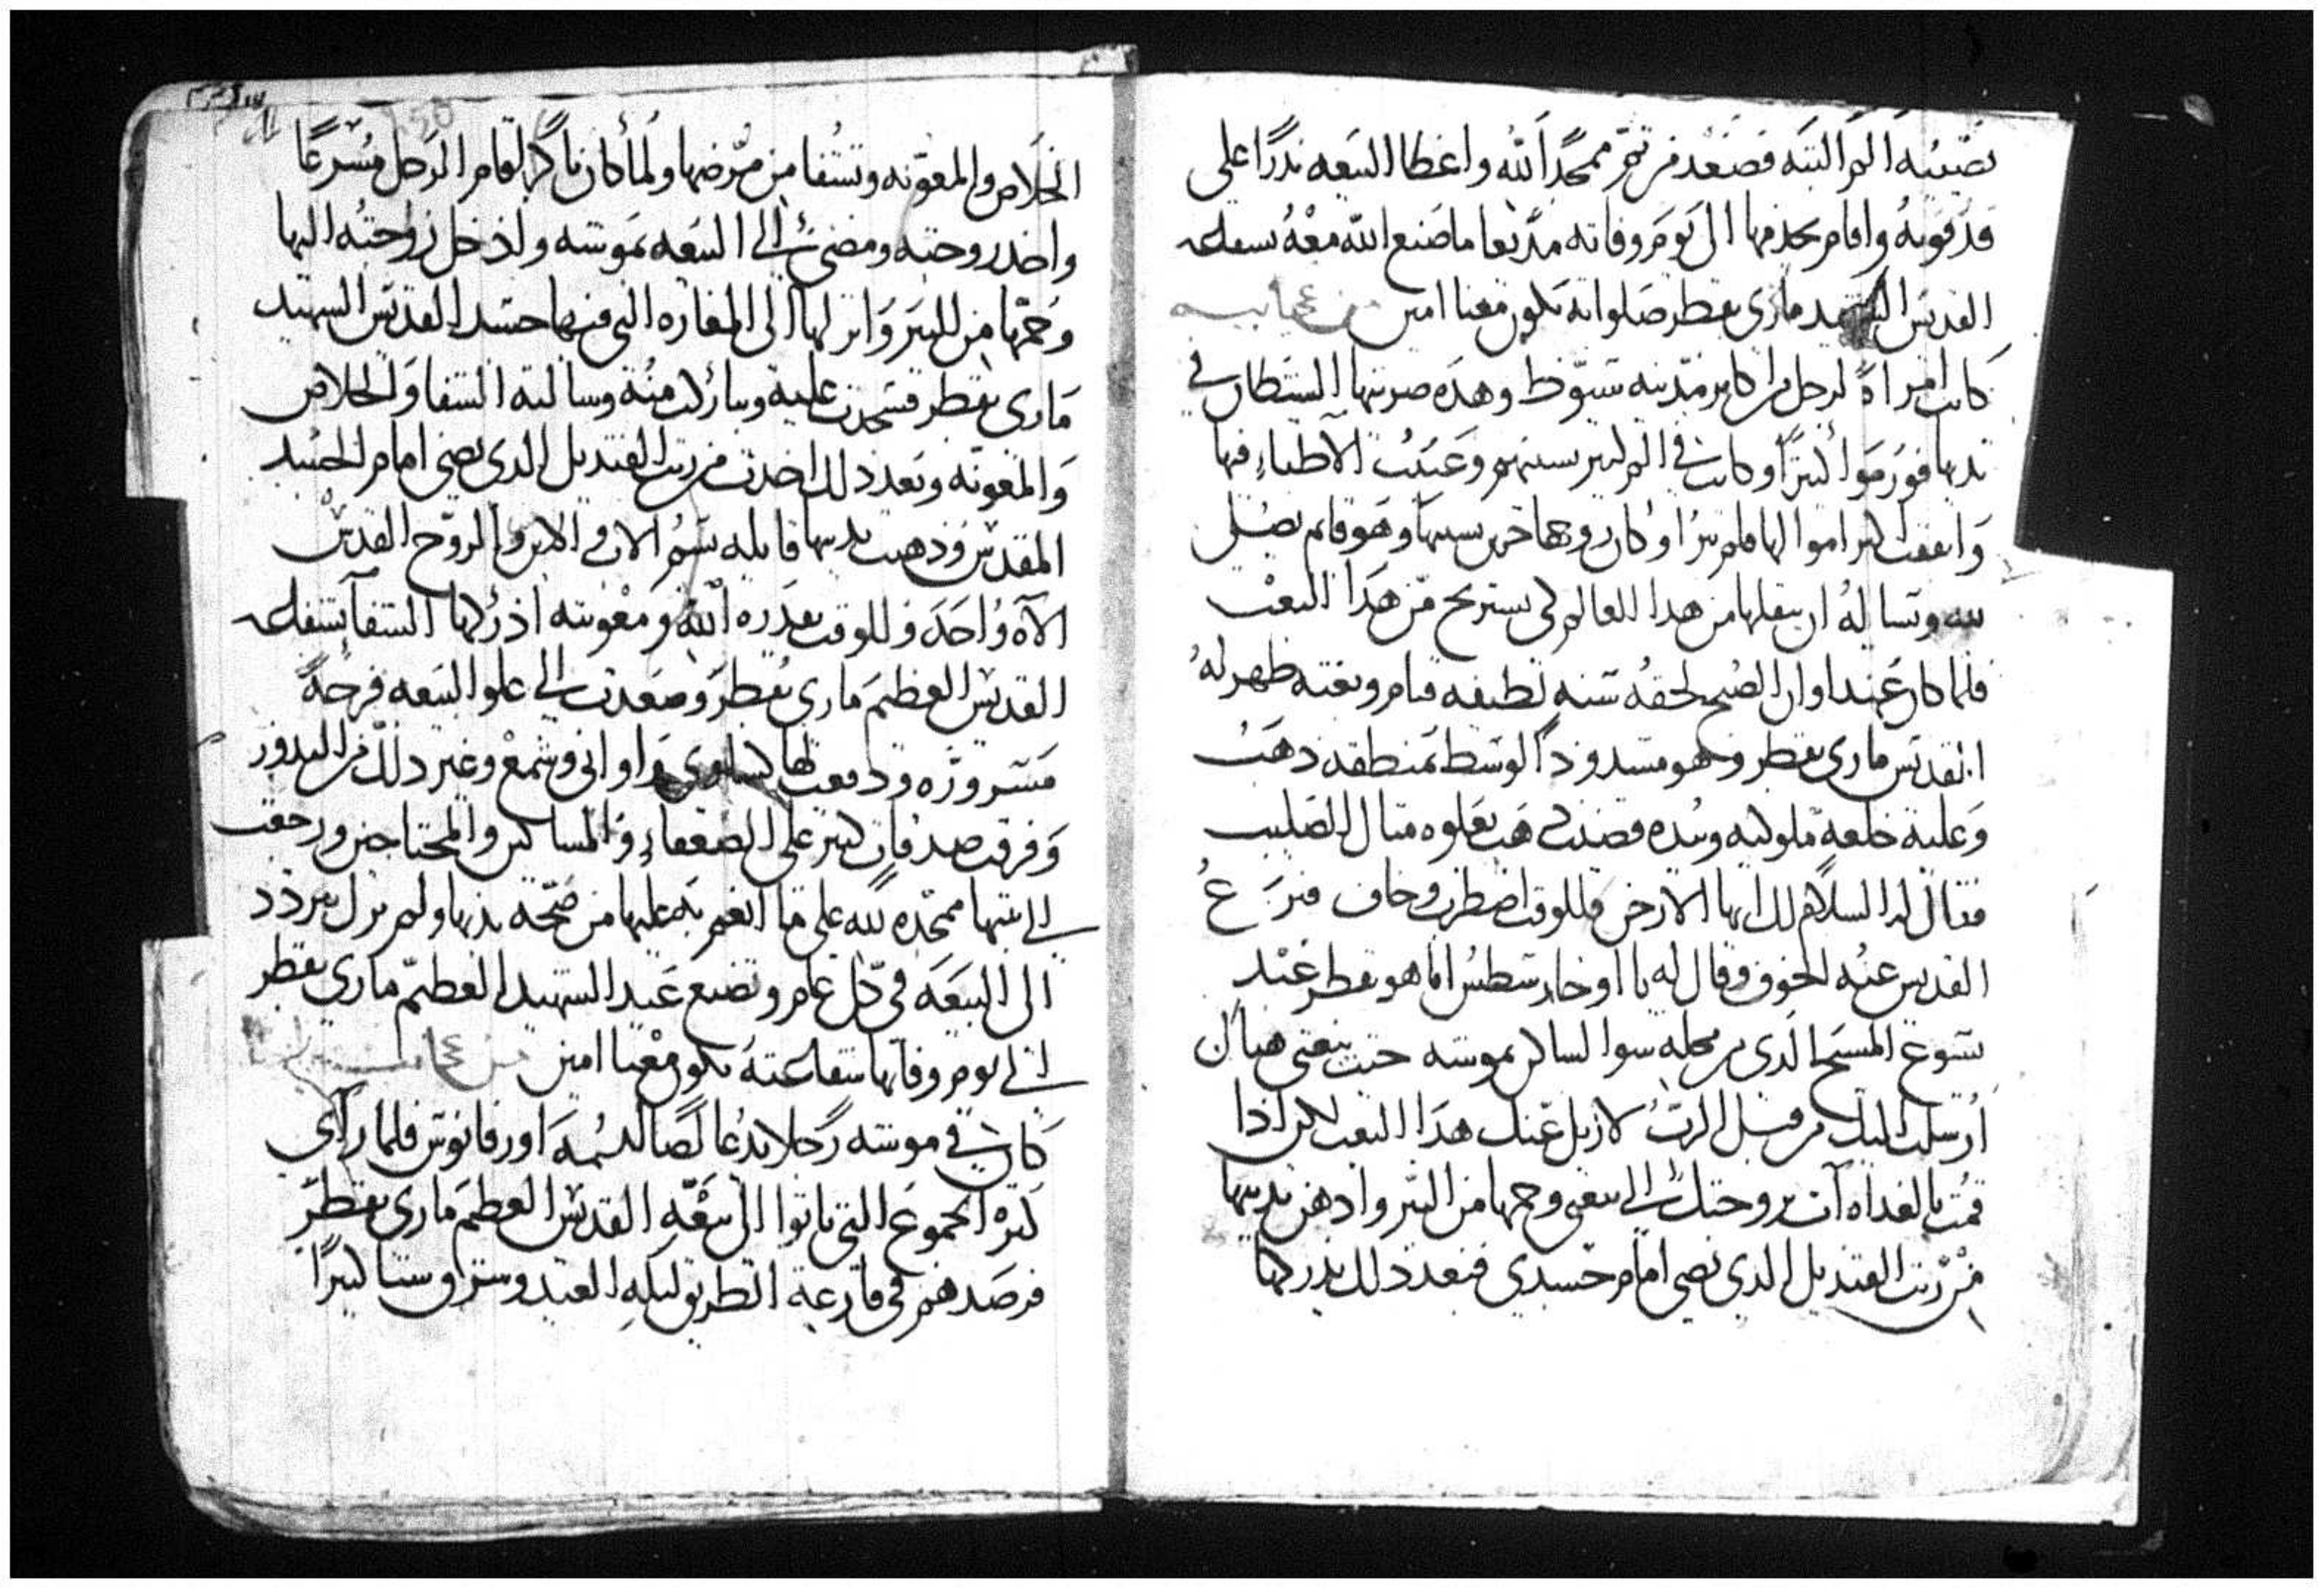 تصيبه الم البته فصعد من تم ممجدا لله واعطا البيعه ندرا على
قد قوته واقام يخدمها الى يوم وفاته مديعا ما صنع الله معه بشفاعة
القديس الشهيد ماري بقطر صلواته تكون معنا امين من عجايبه
كانت امراة لرجل من اكابر مدينه سيوط وهده ضربها الشيطان في
تديها فورموا كتيرا وكانت في الم كتير بسببهم وعيت الاطباء فيها
وانفقت كتير اموالها فلم تبرا وكان زوجها حزين بسببها وهو قايم يصلي
لله ويساله ان ينقلها من هدا العالم لكي يستريح من هدا التعب
فلما كان عند اوان الصبح لحقه سنه لطيفه فنام وبغته ظهر له
القديس ماري بقطر وهو مشدود الوسط بمنطقه دهب
وعليه خلعة ملوكيه وبيده قضيب دهب يعلوه متال الصليب
فقال له السلام لك ايها الارخن فللوقت اضطرب وخاف فنزع
القديس عنه الخوف وقال له يا اوخارسطس انا هو بقطر عبد
يسوع المسيح الدي من محله سوا الساكن بموشه حيت بيعتي هناك
ارسلت اليك من قبل الرب لازيل عنك هدا التعب لان ادا
قمت بالغداه آت بزوجتك الى بيعتي وحمها من البير وادهن تدييها
من زيت القنديل الدي يضي امام جسدي فبعد دلك يدركها
الخلاص والمعونه وتشفا من مرضها ولما كان باكر قام الرجل مسرعا
واخد زوجته ومضى الى البيعه بموشه وادخل زوجته اليها
وحمها من البير وانزلها الى المغاره التي فيها جسد القديس الشهيد
ماري بقطر فسجدت عليه وتباركت منه وسالته الشفا والخلاص
والمعونه وبعد دلك اخدت من زيت القنديل الدي يضي امام الجسد
المقدس ودهنت تدييها قايله بسم الاب والابن والروح القدس
الآه واحد وللوقت بقدره الله ومعونته ادركها الشفا بشفاعة
القديس العظيم ماري بقطر وصعدت الى علو البيعه فرحة
مسروره ودفعت لها كساوي واواني وشمع وغير دلك من الندور
وفرقت صدقات كتير على الضعفاء والمساكين والمحتاجين ورجعت
الى بيتها ممجده لله على ما انعم به عليها من صحة تديها ولم تزل تتردد
الى البيعه في كل عام وتصنع عيد الشهيد العظيم ماري بقطر
الى يوم وفاتها شفاعته تكون معنا امين من عجايبه
كان في موشه رجلا يدعا لصا اسمه اورفانوس فلما رآي
كتره الجموع التي ياتوا الى بيعة القديس العظيم ماري بقطر
فرصدهم في قارعة الطريق ليلة العيد وسرق شيا كتيرا